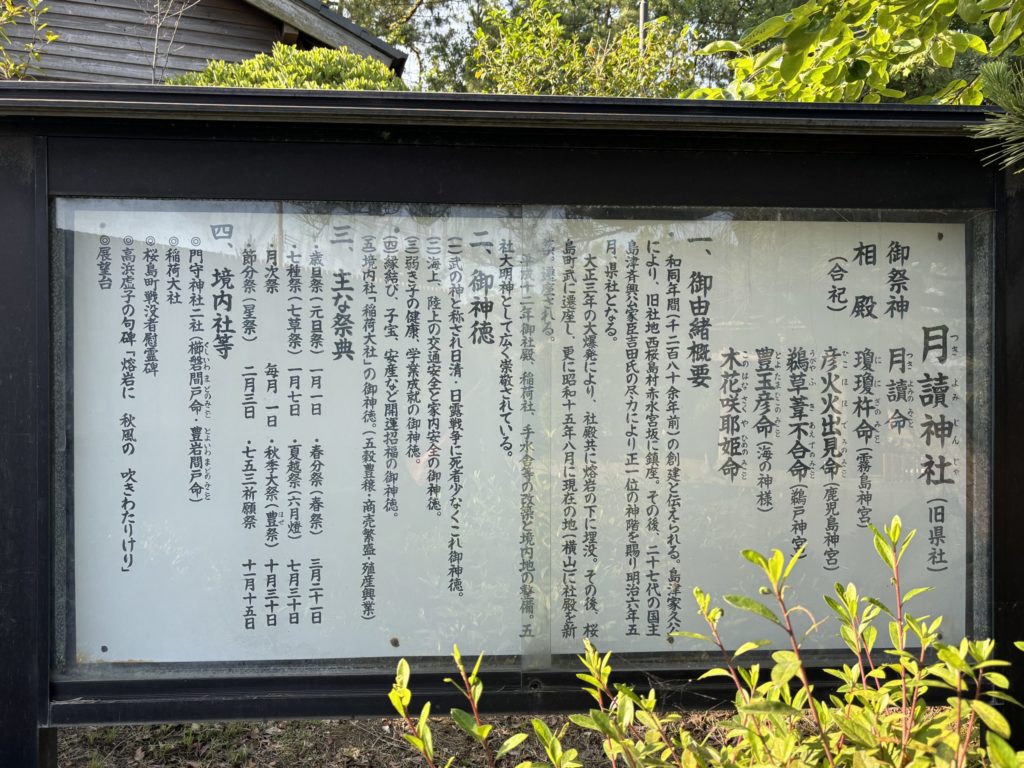 月讀神社（旧県社）
つきよみじんじゃ
御祭神　月讀命
つきよみのみこと
相殿　瓊瓊杵命（霧島神宮）
ににぎのみこと
（合祀）　彦火火出見命（鹿児島神宮）
ひこほほでみのみこと
鵜草葺不合命（鵜戸神宮）
豊玉彦命（海の神様）
とよたまひこのみこと
木花咲耶姫命
このはなさくやひめのみこと
一、御由緒概要
和同年間（千二百八十余年前）の創建と伝えられる。島津家久公
により、旧社地西桜島村赤水宮坂に鎮座。その後、二十七代の国主
島津斉興公家臣吉田氏の尽力により正一位の神階を賜り明治六年五
月、県社となる。
大正三年の大爆発により、社殿共に熔岩の下に埋没。その後、桜
島町武に遷座し、更に昭和十五年八月に現在の地（横山）に社殿を新
遷宮される。
十二年御社殿、稲荷社、手水舎等の改築と境内地の整備。五
社大明神として広く崇敬されている。
二、御神徳
（一）武の神と称され日清・日露戦争に死者少なくこれ御神徳。
（二）海上、陸上の交通安全と家内安全の御神徳。
（三）弱き子の健康、学業成就の御神徳。
（四）縁結び、子宝、安産など開運招福の御神徳。
（五）境内社「稲荷大社」の御神徳。（五穀豊穣・商売繁盛・殖産興業）
三、主な祭典
・歳旦祭（元旦祭）　一月一日　・春分祭（春祭）　三月二十一日
・七種祭（七草祭）　一月七日　・夏越祭（六月燈）　七月三十日
・月次祭　毎月一日　・秋季大祭（豊祭）　十月三十日
ほぜ
・節分祭（星祭）　二月三日　・七五三祈願祭　十一月十五日
四、境内社等
◎門守神社二社（櫛磐間戸命・豊岩間戸命）
くしいわまどのみこと　とよいわまどのみこと
◎稲荷大社
◎桜島町戦没者慰霊碑
◎高浜虚子の句碑「熔岩に　秋風の　吹きわたりけり」
◎展望台